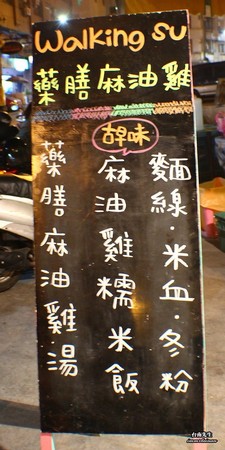 Walking su
藥膳麻油雞
古早味
麵線·米血·冬粉
麻油雞糯米飯
藥膳麻油雞湯
台南先生